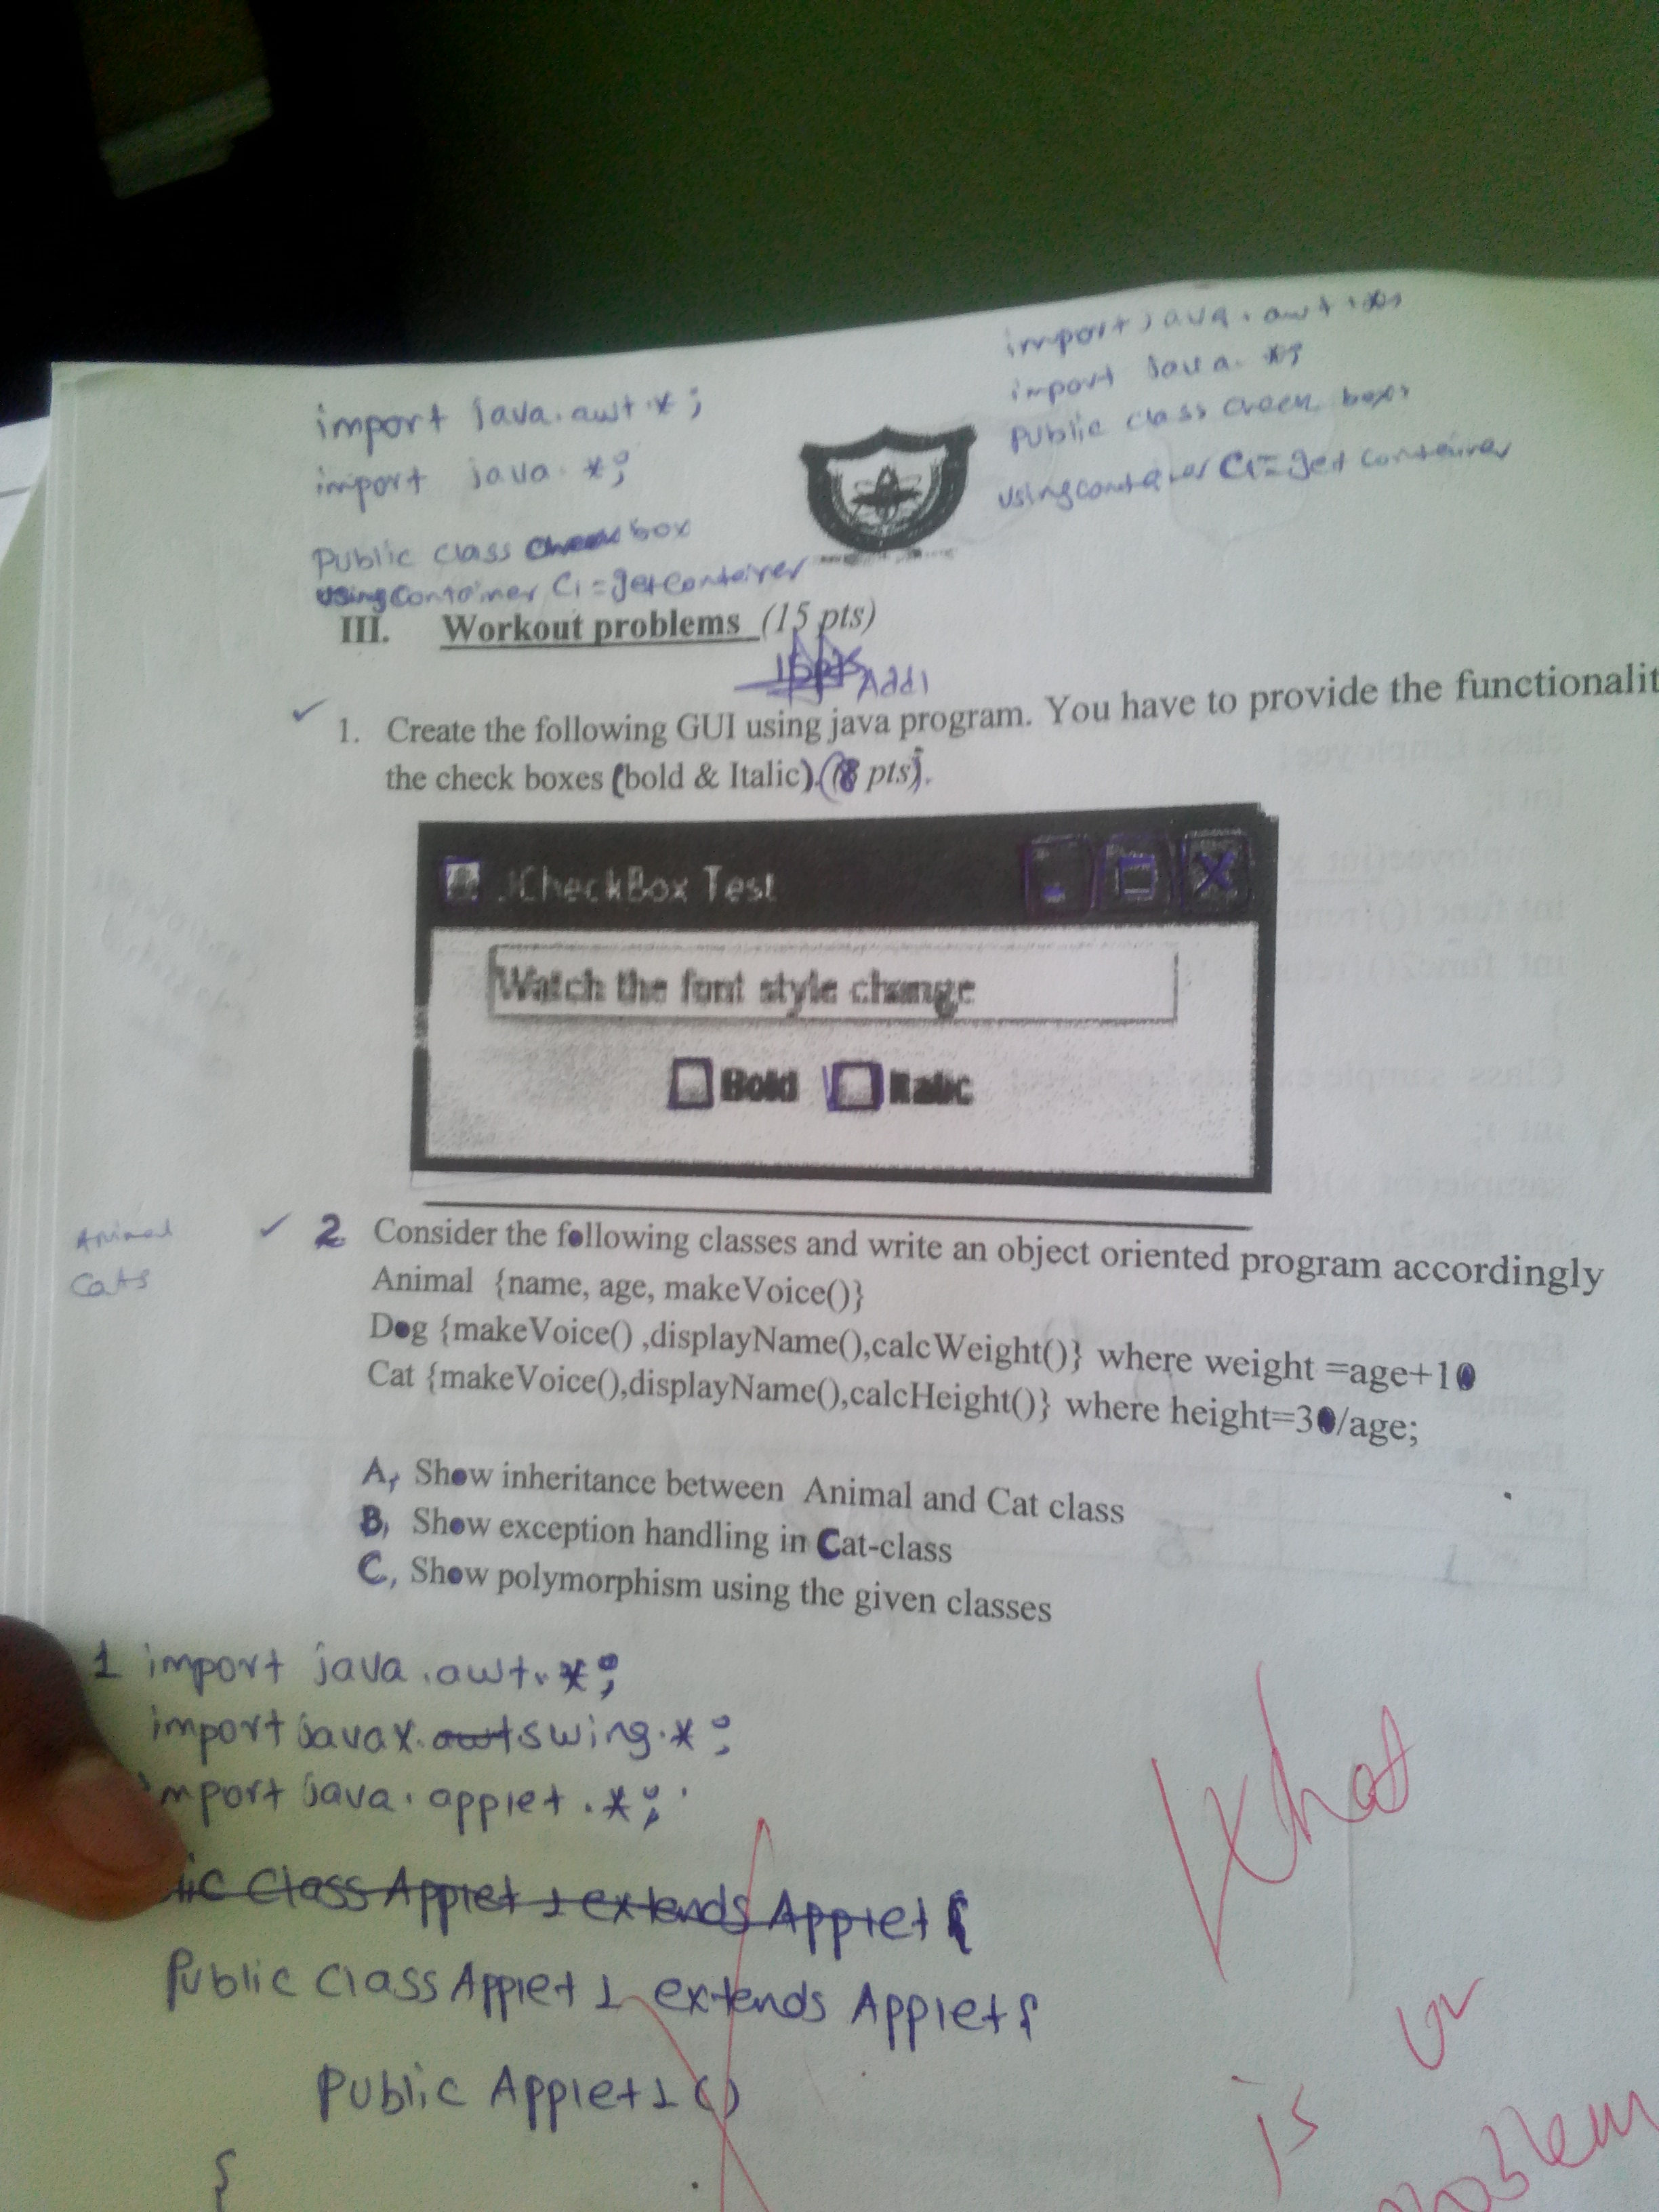 import java.awt.*;
import java.*;
Public class box
using Container C1=getContainer
import java.awt.*;
import java.*;
Public class boxes
C1=get Container
III. Workout problems (15 pts)
Add1
1. Create the following GUI using java program. You have to provide the functionalit
the check boxes (bold & Italic).(8 pts).
JCheckBox Test
Watch the font style change
Bold Italic
Animal
Cats
2 Consider the following classes and write an object oriented program accordingly
Animal {name, age, makeVoice()}
Dog {makeVoice() ,displayName(),calcWeight()} where weight =age+10
Cat {makeVoice(),displayName(),calcHeight()} where height=30/age;
A, Show inheritance between Animal and Cat class
B, Show exception handling in Cat-class
C, Show polymorphism using the given classes
1 import java.awt.*;
import javax.awt swing.*;
mport java.applet.*;
lic Class Applet 1 extends Applet {
Public Class Applet 1 extends Applet {
Public Applet 1 ()
{
What
is ur
problem